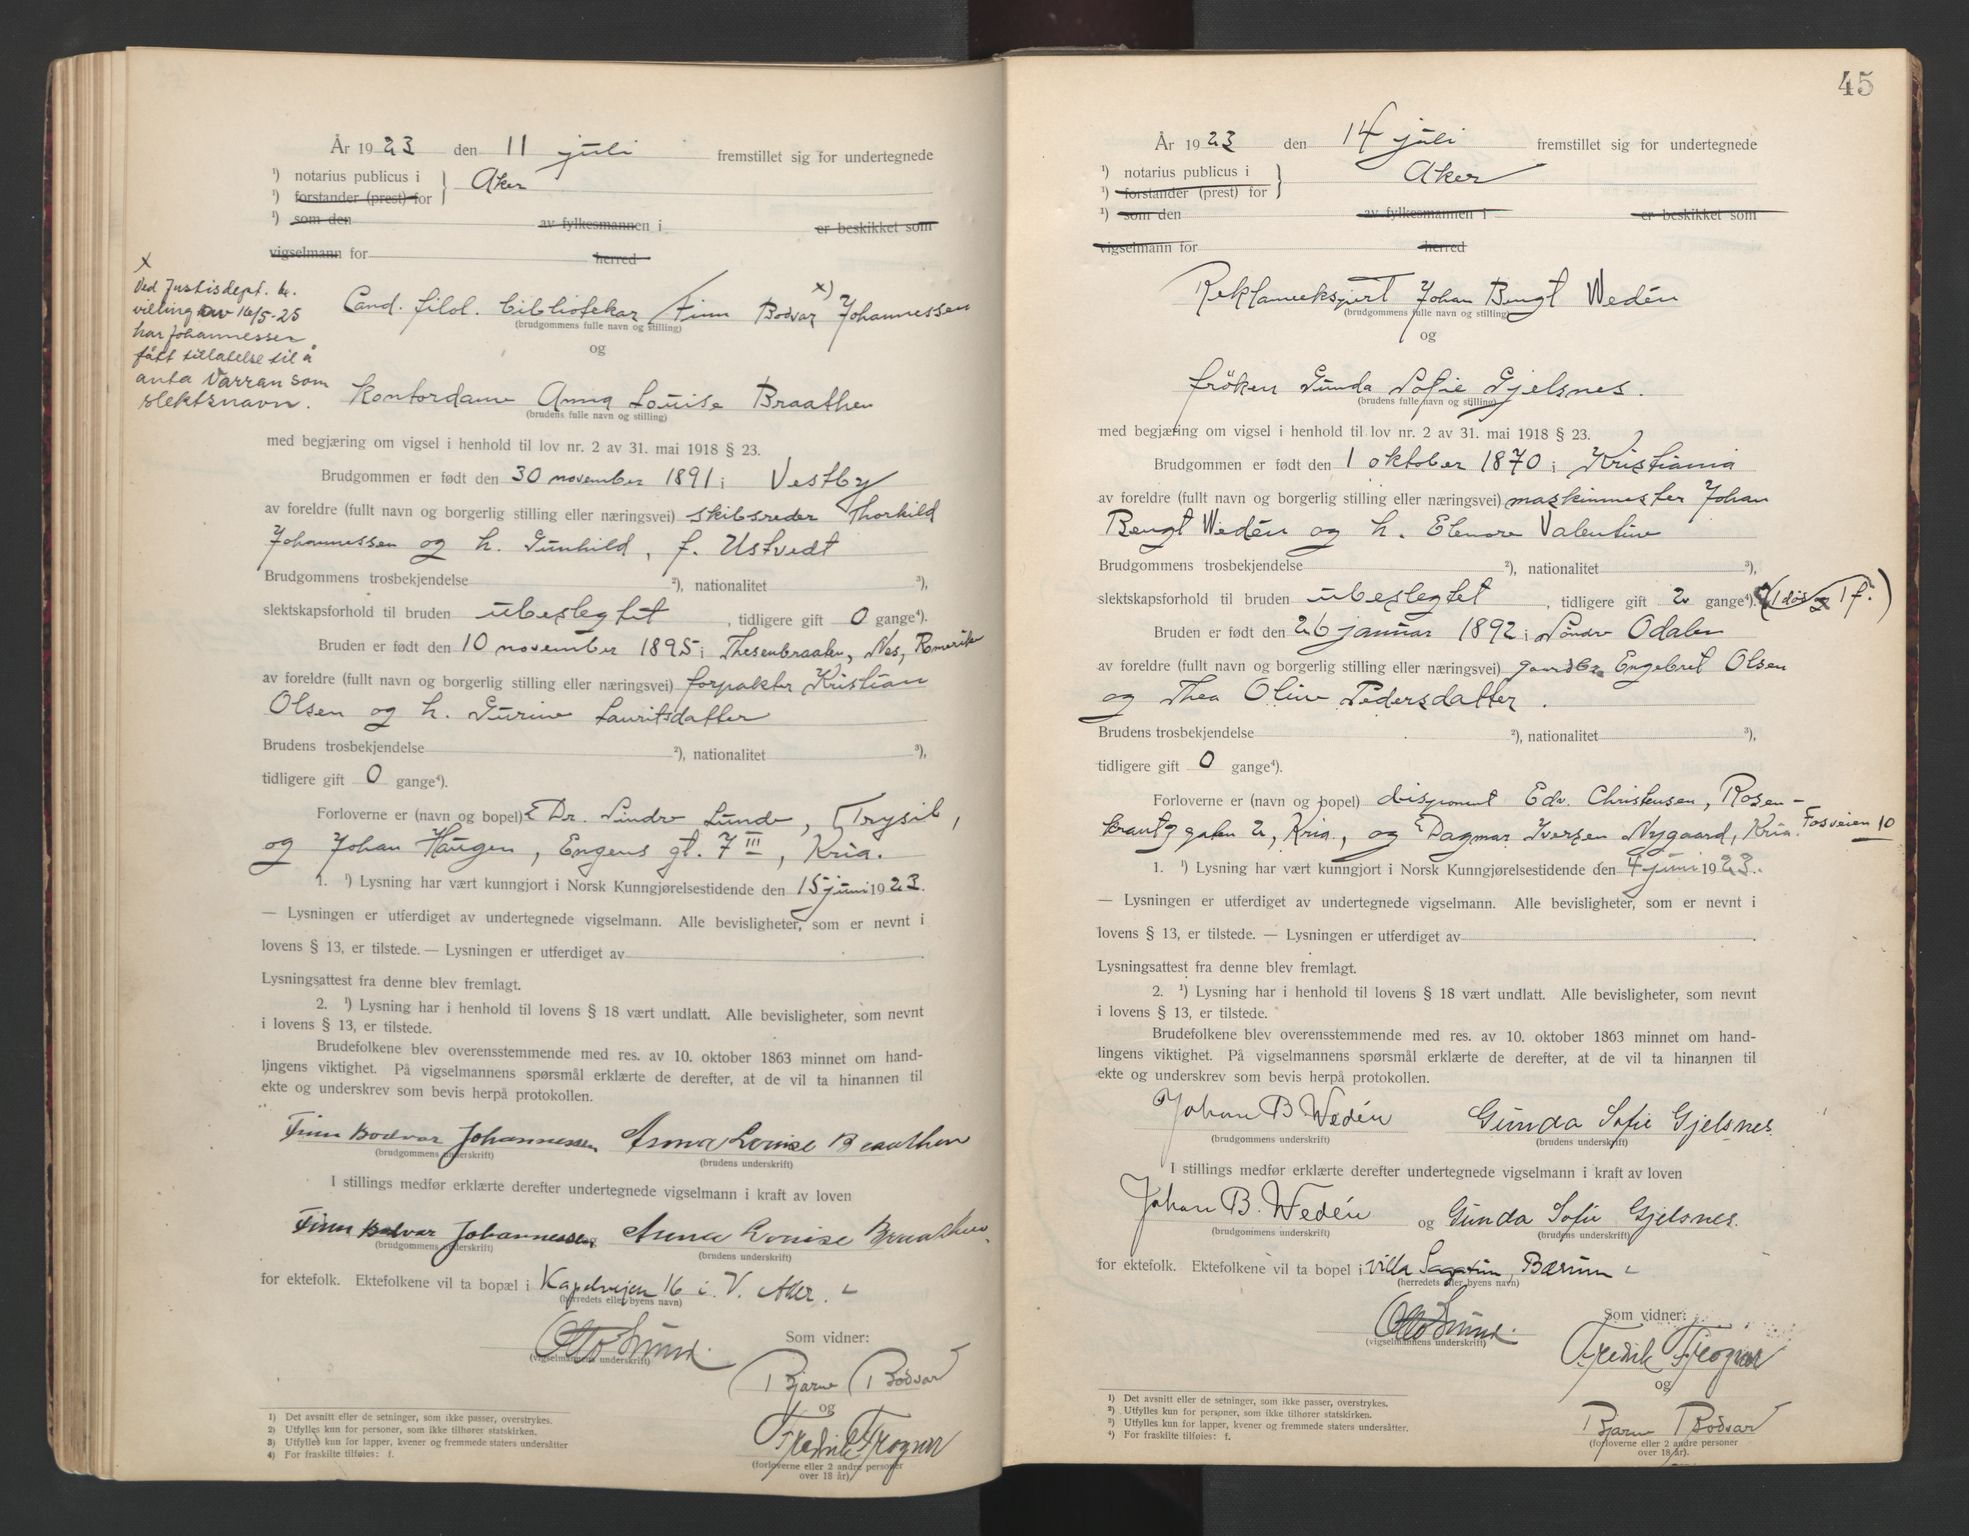 År 1923 den 11 juli fremstillet sig for undertegnede
¹) notarius publicus i } Aker
¹) forstander (prest) for
¹) som den av fylkesmannen i er beskikket som
vigselmann for herred
x
Ved Justisdept. be-
villing av 16/5-25
har Johannessen
fått tillatelse til å
anta Varran som
slektsnavn.
Cand. filol. bibliotekar Finn Bodvar x) Johannessen
(brudgommens fulle navn og stilling)
og
Kontordame Anna Louise Braathen
(brudens fulle navn og stilling)
med begjæring om vigsel i henhold til lov nr. 2 av 31. mai 1918 § 23.
Brudgommen er født den 30 november 1891 i Vestby
av foreldre (fullt navn og borgerlig stilling eller næringsvei) skibsreder Thorkild
Johannessen og h. Gunhild, f. Ustvedt
Brudgommens trosbekjendelse ²), nationalitet ³),
slektskapsforhold til bruden ubeslegtet, tidligere gift 0 gange⁴).
Bruden er født den 10 november 1895 i Thesenbraaten, Nes, Romerike
av foreldre (fullt navn og borgerlig stilling eller næringsvei) forpakter Kristian
Olsen og h. Gurine Lauritsdatter
Brudens trosbekjendelse ²), nationalitet ³),
tidligere gift 0 gange⁴).
Forloverne er (navn og bopel) Dr. Sindre Lunde, Trysil,
og Johan Haugen, Engens gt. 7 III, Kria.
1. ¹) Lysning har vært kunngjort i Norsk Kunngjørelsestidende den 15 juni 1923.
— Lysningen er utferdiget av undertegnede vigselmann. Alle bevisligheter, som er nevnt i
lovens § 13, er tilstede. — Lysningen er utferdiget av
Lysningsattest fra denne blev fremlagt.
2. ¹) Lysning har i henhold til lovens § 18 vært undlatt. Alle bevisligheter, som nevnt
i lovens § 13, er tilstede.
Brudefolkene blev overensstemmende med res. av 10. oktober 1863 minnet om hand-
lingens viktighet. På vigselmannens spørsmål erklærte de derefter, at de vil ta hinannen til
ekte og underskrev som bevis herpå protokollen.
Finn Bodvar Johannessen Anna Louise Braathen
(brudgommens underskrift) (brudens underskrift)
I stillings medfør erklærte derefter undertegnede vigselmann i kraft av loven
Finn Bodvar Johannessen Anna Louise Braathen
(brudgommens underskrift) (brudens underskrift)
for ektefolk. Ektefolkene vil ta bopæl i Kapelveien 16 i V. Aker.
(herredets eller byens navn)
Otto Lund.
(vigselmannens underskrift)
Som vidner:
Bjarne Bodvar
og
Fredrik Frogner
(forloverne eller 2 andre personer
over 18 år).
1) Det avsnitt eller de setninger, som ikke passer, overstrykes.
2) Utfylles kun for personer, som ikke tilhører statskirken.
3) Utfylles kun for lapper, kvener og fremmede staters undersåtter
4) For fraskilte tilføies: f.
45
År 1923 den 14 juli fremstillet sig for undertegnede
¹) notarius publicus i } Aker
¹) forstander (prest) for
¹) som den av fylkesmannen i er beskikket som
vigselmann for herred
Reklameekspert Johan Bengt Wedén
(brudgommens fulle navn og stilling)
og
frøken Gunda Sofie Gjelsnes.
(brudens fulle navn og stilling)
med begjæring om vigsel i henhold til lov nr. 2 av 31. mai 1918 § 23.
Brudgommen er født den 1 oktober 1870 i Kristiania
av foreldre (fullt navn og borgerlig stilling eller næringsvei) maskinmester Johan
Bengt Wedén og h. Elenore Valentine
Brudgommens trosbekjendelse ²), nationalitet ³),
slektskapsforhold til bruden ubeslegtet, tidligere gift 2 gange⁴). (1 død og 1 f.)
Bruden er født den 26 januar 1892 i Søndre Odalen
av foreldre (fullt navn og borgerlig stilling eller næringsvei) gaardbr. Engebret Olsen
og Thea Oline Pedersdatter.
Brudens trosbekjendelse ²), nationalitet ³),
tidligere gift 0 gange⁴).
Forloverne er (navn og bopel) disponent Edv. Christensen, Rosen-
krantz gaten 2, Kria., og Dagmar Iversen Nygaard, Kria. Fosveien 10
1. ¹) Lysning har vært kunngjort i Norsk Kunngjørelsestidende den 4 juni 1923.
— Lysningen er utferdiget av undertegnede vigselmann. Alle bevisligheter, som er nevnt i
lovens § 13, er tilstede. — Lysningen er utferdiget av
Lysningsattest fra denne blev fremlagt.
2. ¹) Lysning har i henhold til lovens § 18 vært undlatt. Alle bevisligheter, som nevnt
i lovens § 13, er tilstede.
Brudefolkene blev overensstemmende med res. av 10. oktober 1863 minnet om hand-
lingens viktighet. På vigselmannens spørsmål erklærte de derefter, at de vil ta hinannen til
ekte og underskrev som bevis herpå protokollen.
Johan B Wedén Gunda Sofie Gjelsnes.
(brudgommens underskrift) (brudens underskrift)
I stillings medfør erklærte derefter undertegnede vigselmann i kraft av loven
Johan B. Wedén og Gunda Sofie Gjelsnes.
(brudgommens underskrift) (brudens underskrift)
for ektefolk. Ektefolkene vil ta bopel i villa Sagatun, Bærum
(herredets eller byens navn)
Otto Lund.
(vigselmannens underskrift)
Som vidner:
Fredrik Frogner
og
Bjarne Bodvar
(forloverne eller 2 andre personer
over 18 år).
¹) Det avsnitt eller de setninger, som ikke passer, overstrykes.
²) Utfylles kun for personer, som ikke tilhører statskirken.
³) Utfylles kun for lapper, kvener og fremmede staters undersåtter.
⁴) For fraskilte tilføies: f.